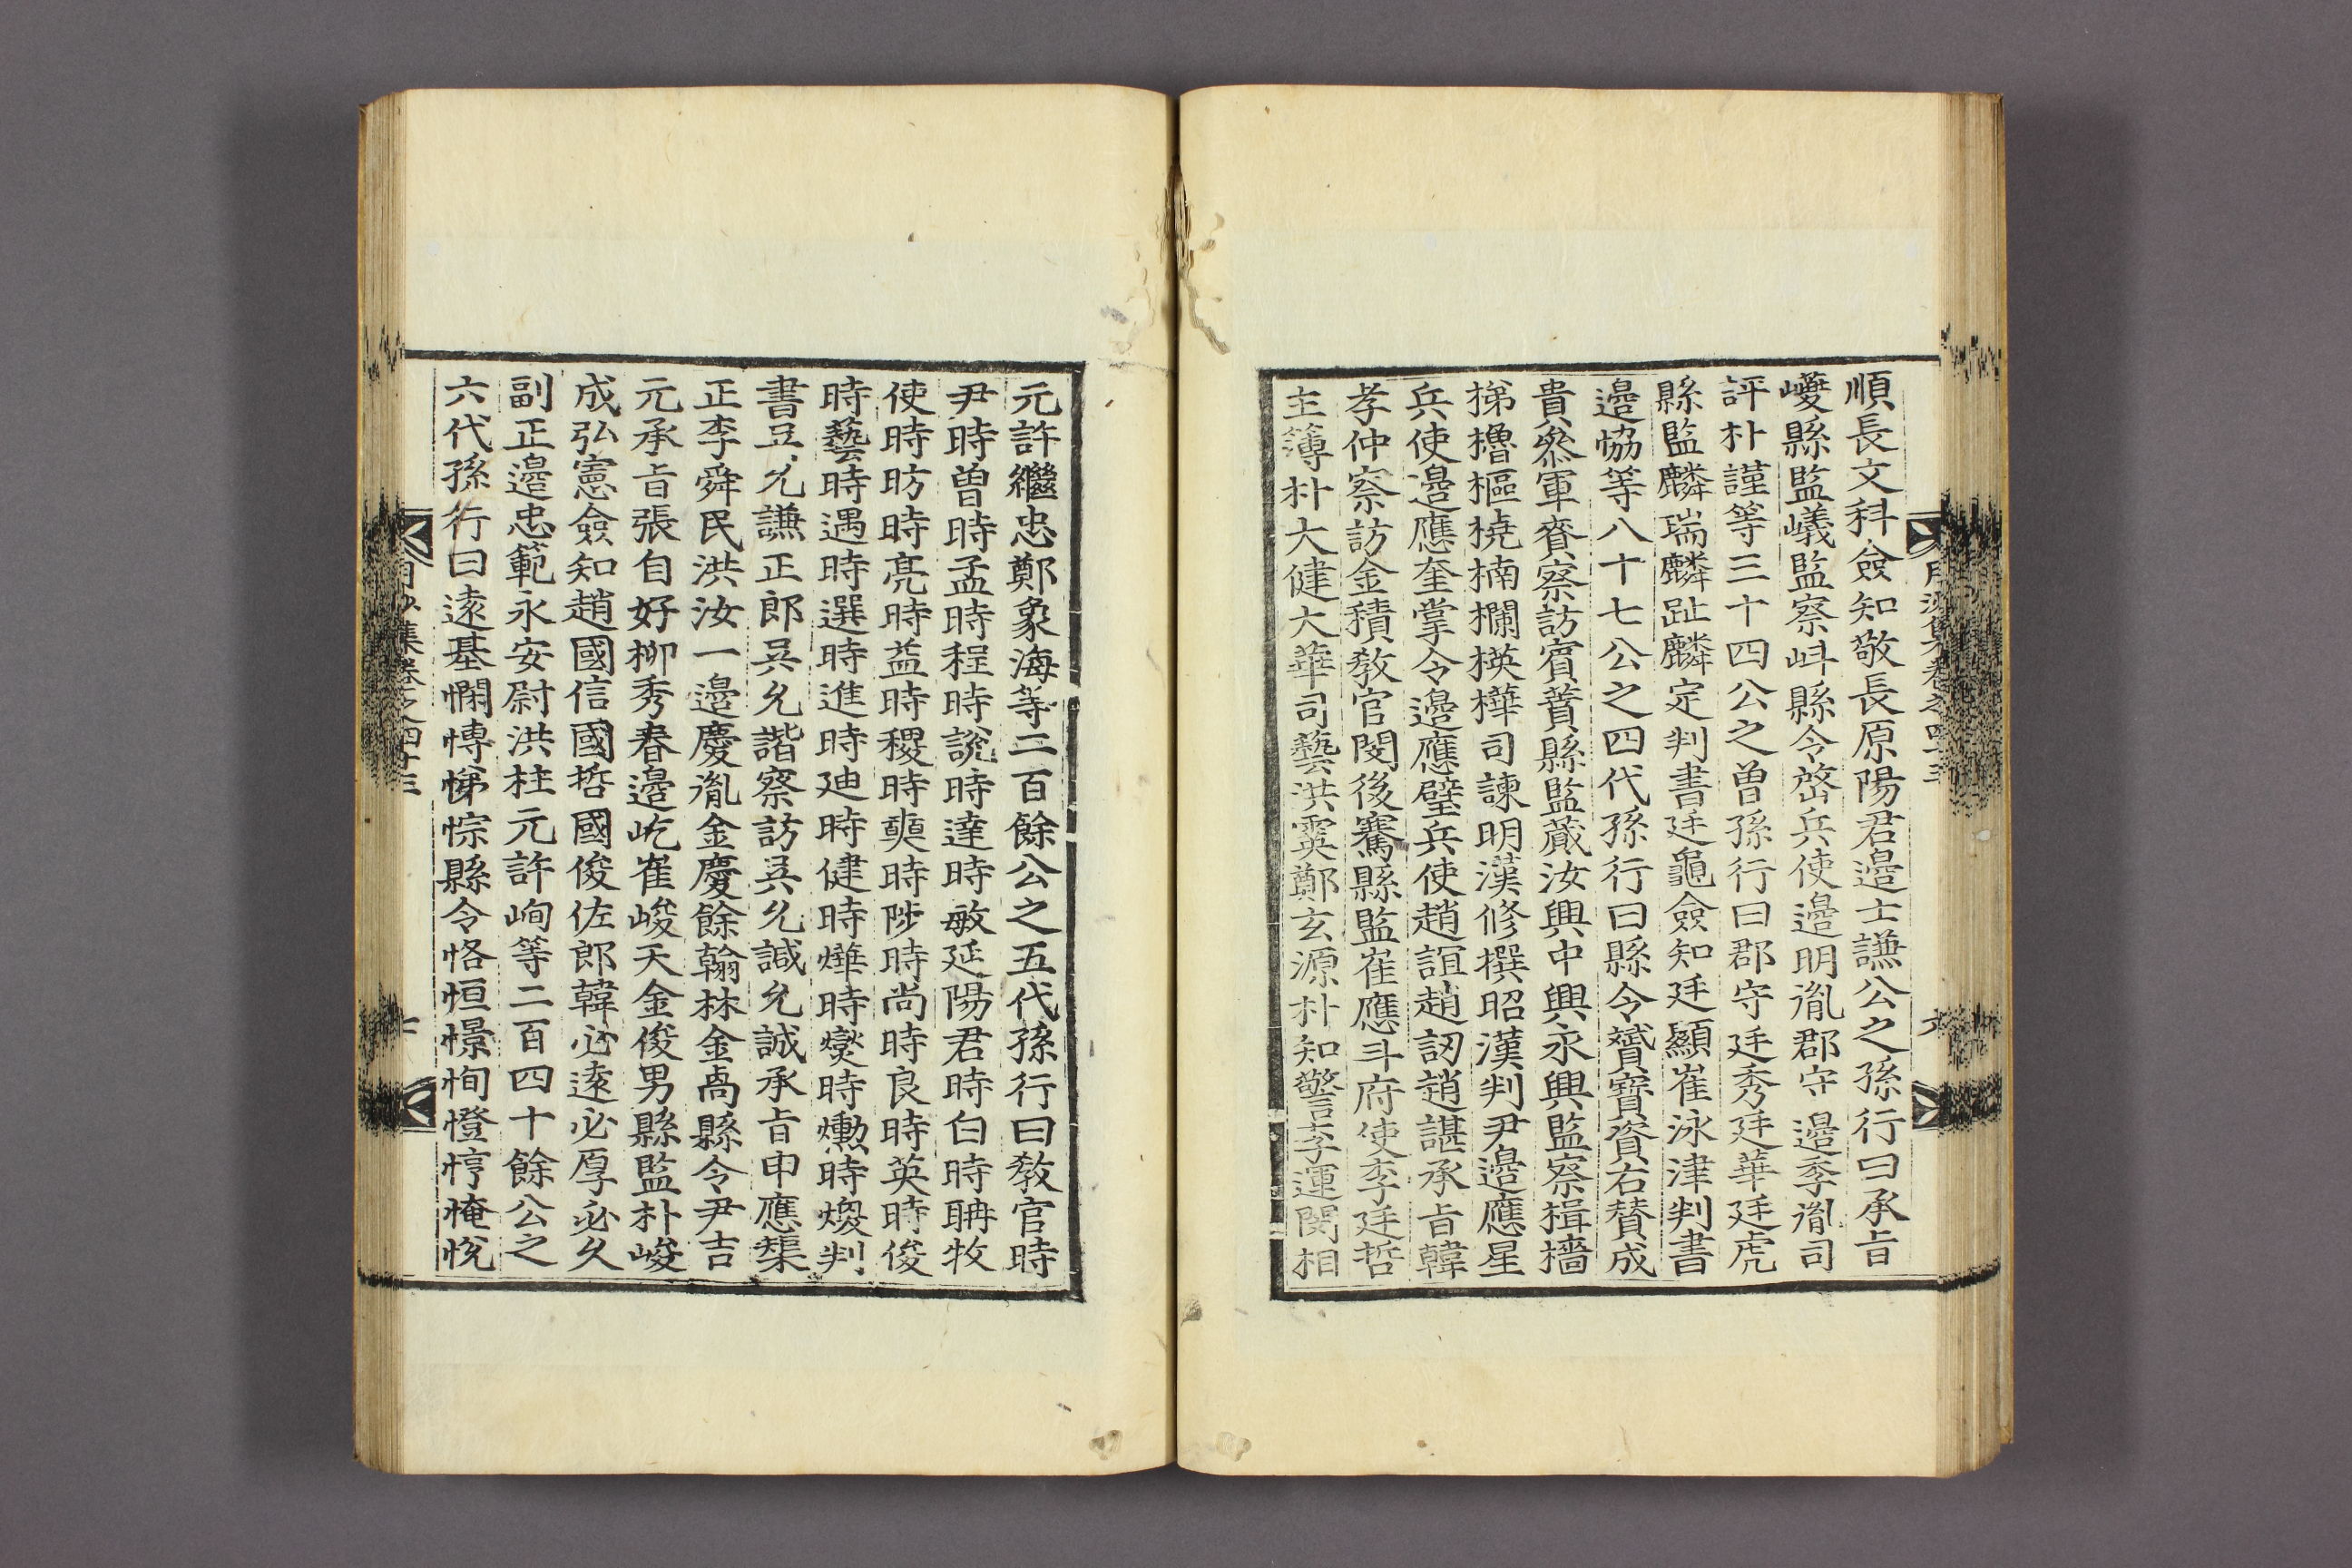 順長文科僉知敬長原陽君邉士謙公之孫行曰承旨
㠛縣監㠖監察㞳縣令啓兵使邉明胤郡守邉季胤司
評朴謹等三十四公之曾孫行曰郡守廷秀廷華廷虎
縣監麟瑞麟趾麟定判書廷龜僉知廷顯崔泳津判書
邉恊等八十七公之四代孫行曰縣令贇寶資右賛成
貴叅軍賚察訪賓蕡縣監蕆汝興中興永興監察楫檣
挮櫓樞橈楠欄楧樺司諫明漢修撰昭漢判尹邉應星
兵使邉應奎掌令邉應壁兵使趙誼趙訒趙諶承旨韓
孝仲察訪金積敎官閔後騫縣監崔應斗府使李廷哲
主簿朴大健大華司藝洪霙鄭玄源朴知警李運閔相
元許繼忠鄭象海等二百餘公之五代孫行曰敎官時
尹時曽時孟時程時說時達時敏延陽君時白時聃牧
使時昉時亮時益時稷時奭時陟時尚時良時英時俊
時藝時遇時選時進時廸時健時爗時爕時爋時煥判
書㠯允謙正郎吳允諧察訪吳允諴允誠承旨申應榘
正李舜民洪汝一邉慶胤金慶餘翰林金卨縣令尹吉
元承旨張自好柳秀春邉屹崔峻天金俊男縣監朴峻
成弘憲僉知趙國信國哲國俊佐郎韓必遠必厚必久
副正邉忠範永安尉洪柱元許峋等二百四十餘公之
六代孫行曰遠基憪愽悌悰縣令恪恒憬恂憕悙㤿悅